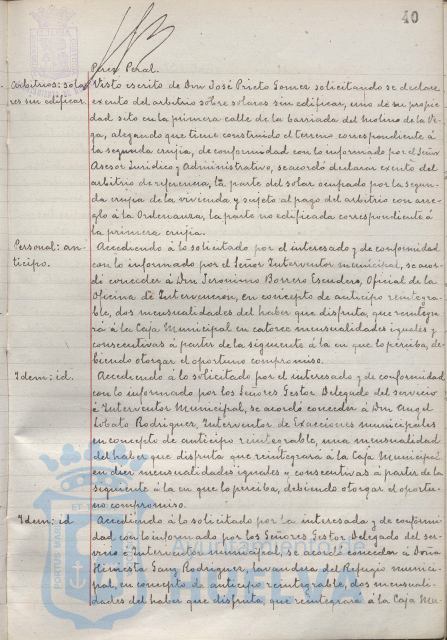 40
Perez Peral.
Arbitrios: sola-
res sin edificar.
Visto escrito de Don José Prieto Gomez solicitando se declare
exento del arbitrio sobre solares sin edificar, uno de su propie
dad sito en la primera calle de la barriada del Molino de la Ve-
ga, alegando que tiene construido el terreno correspondiente á
la segunda crujia, de conformidad con lo informado por el Señor
Asesor Juridico y Administrativo, se acordó declarar exento del
arbitrio de referencia, la parte del solar ocupado por la segun-
da crujia de la vivienda y sujeto al pago del arbitrio con arre-
glo á la Ordenanza, la parte no edificada correspondiente á
la primera crujia.
Personal: an-
ticipo.
Accediendo á lo solicitado por el interesado y de conformidad
con lo informado por el Señor Interventor municipal, se acor-
dó conceder á Don Jeronimo Borrero Escudero, Oficial de la
Oficina de Intervencion, en concepto de anticipo reintegra-
ble, dos mensualidades del haber que disfruta, que reintegra
rá á la Caja Municipal en catorce mensualidades iguales y
consecutivas á partir de la siguiente á la en que lo perciba, de-
biendo otorgar el oportuno compromiso.
Idem: id.
Accediendo á lo solicitado por el interesado y de conformidad
con lo informado por los Señores Gestor Delegado del servicio
é Interventor Municipal, se acordó conceder á Don Angel
Lobato Rodriguez, Interventor de Exacciones municipales
en concepto de anticipo reintegrable, una mensualidad
del haber que disfruta que reintegrará á la Caja Municipal
en diez mensualidades iguales y consecutivas á partir de la
siguiente á la en que lo perciba, debiendo otorgar el oportu-
no compromiso.
Idem: id
Accediendo á lo solicitado por la interesada y de conformi-
dad con lo informado por los Señores Gestor Delegado del ser-
vicio é interventor municipal, se acordó conceder á Doña
Rodriguez, lavandera del Refugio munici-
pal, en concepto de anticipo reintegrable, dos mensuali-
dades del haber que disfruta, que reintegrará á la Caja Mu-
PORTUS MARIS
Ayuntamiento de
HUELVA